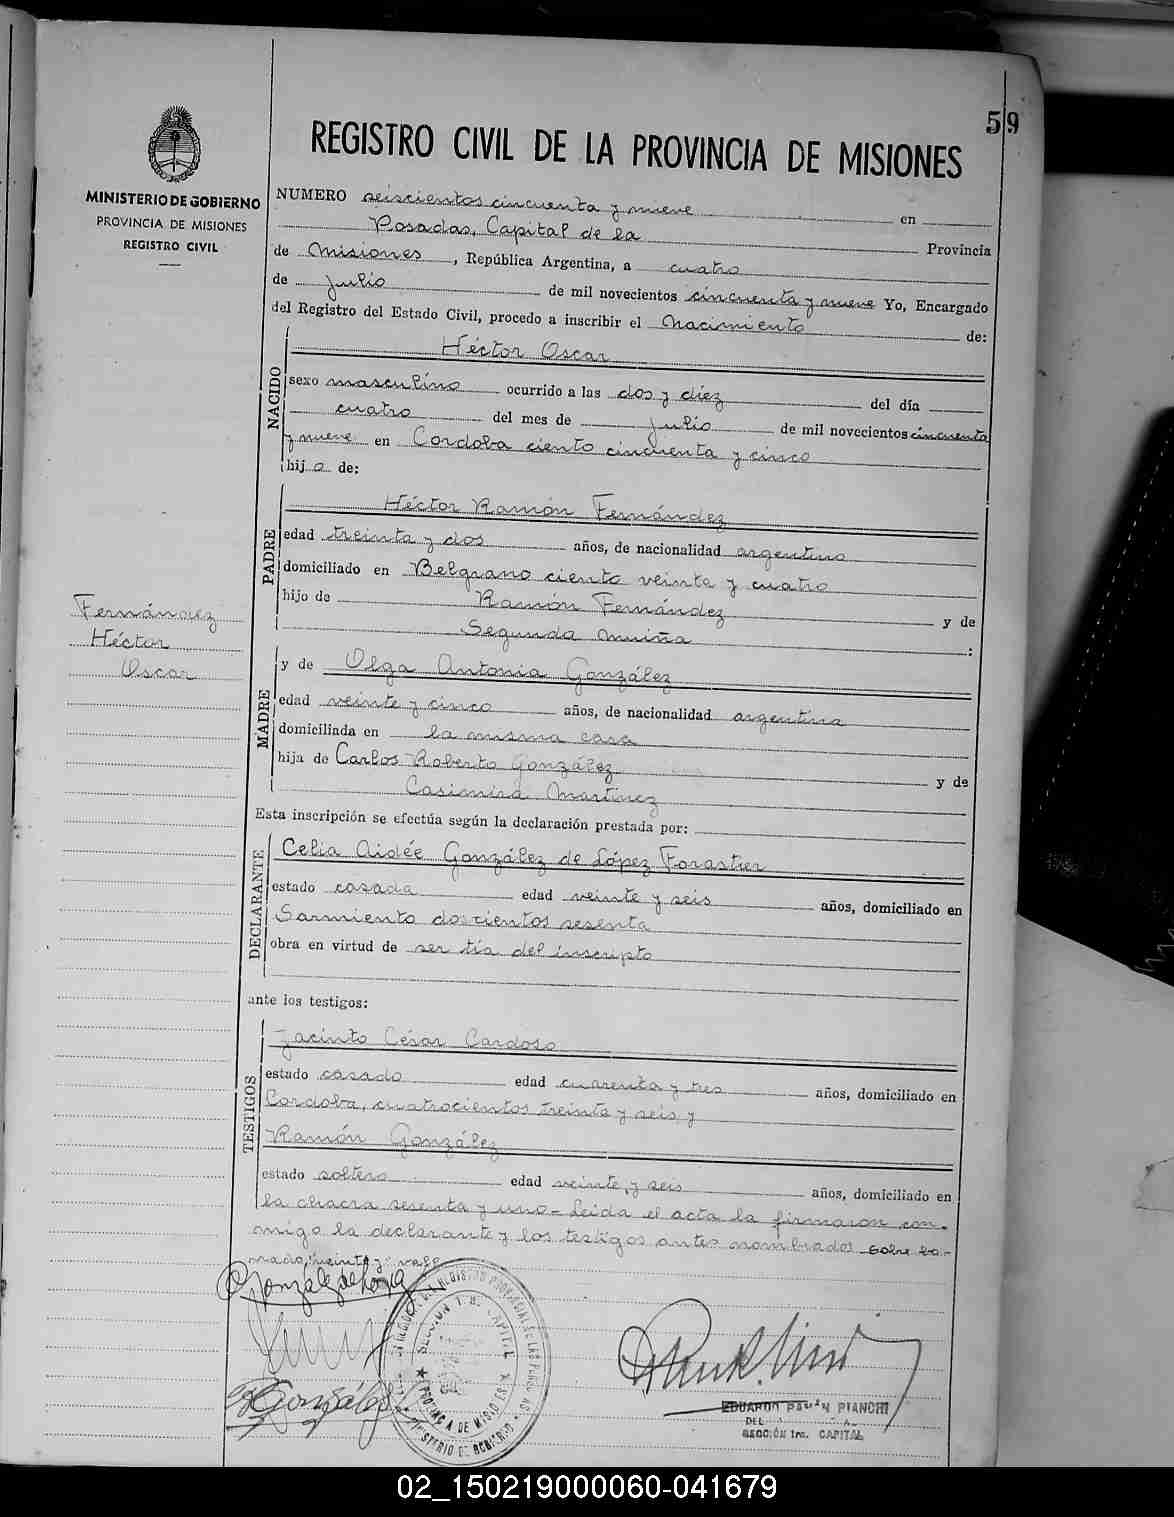 59
REGISTRO CIVIL DE LA PROVINCIA DE MISIONES
MINISTERIO DE GOBIERNO
PROVINCIA DE MISIONES
REGISTRO CIVIL
NUMERO seiscientos cincuenta y nueve en
Posadas, Capital de la Provincia
de Misiones, República Argentina, a cuatro
de Julio de mil novecientos cincuenta y nueve Yo, Encargado
del Registro del Estado Civil, procedo a inscribir el Nacimiento de:
NACIDO
Héctor Oscar
sexo masculino ocurrido a las dos y diez del día
cuatro del mes de Julio de mil novecientos cincuenta
y nueve en Cordoba ciento cincuenta y cinco
hijo de:
PADRE
Héctor Ramón Fernández
edad treinta y dos años, de nacionalidad argentino
domiciliado en Belgrano ciento veinte y cuatro
hijo de Ramón Fernández y de
Segunda Muiña :
Fernández
Héctor
Oscar
MADRE
y de Olga Antonia González
edad veinte y cinco años, de nacionalidad argentina
domiciliada en la misma casa
hija de Carlos Roberto González y de
Casimira Martínez
Esta inscripción se efectúa según la declaración prestada por:
DECLARANTE
Celia Aidée González de López Forastier
estado casada edad veinte y seis años, domiciliado en
Sarmiento doscientos sesenta
obra en virtud de ser tía del inscripto
ante los testigos:
TESTIGOS
Jacinto César Cardoso
estado casado edad cuarenta y tres años, domiciliado en
Cordoba, cuatrocientos treinta y seis, y
Ramón González
estado soltero edad veinte y seis años, domiciliado en
la chacra sesenta y uno - Leída el acta la firmaron con-
migo la declarante y los testigos antes nombrados sobre bo-
rrado "veinte y" vale
RGonzález
SECCION 1ra. CAPITAL
PROVINCIA DE MISIONES
MINISTERIO DE GOBIERNO
EDUARDO PIANCHI
DEL
SECCIÓN 1ra. CAPITAL
02_150219000060-041679